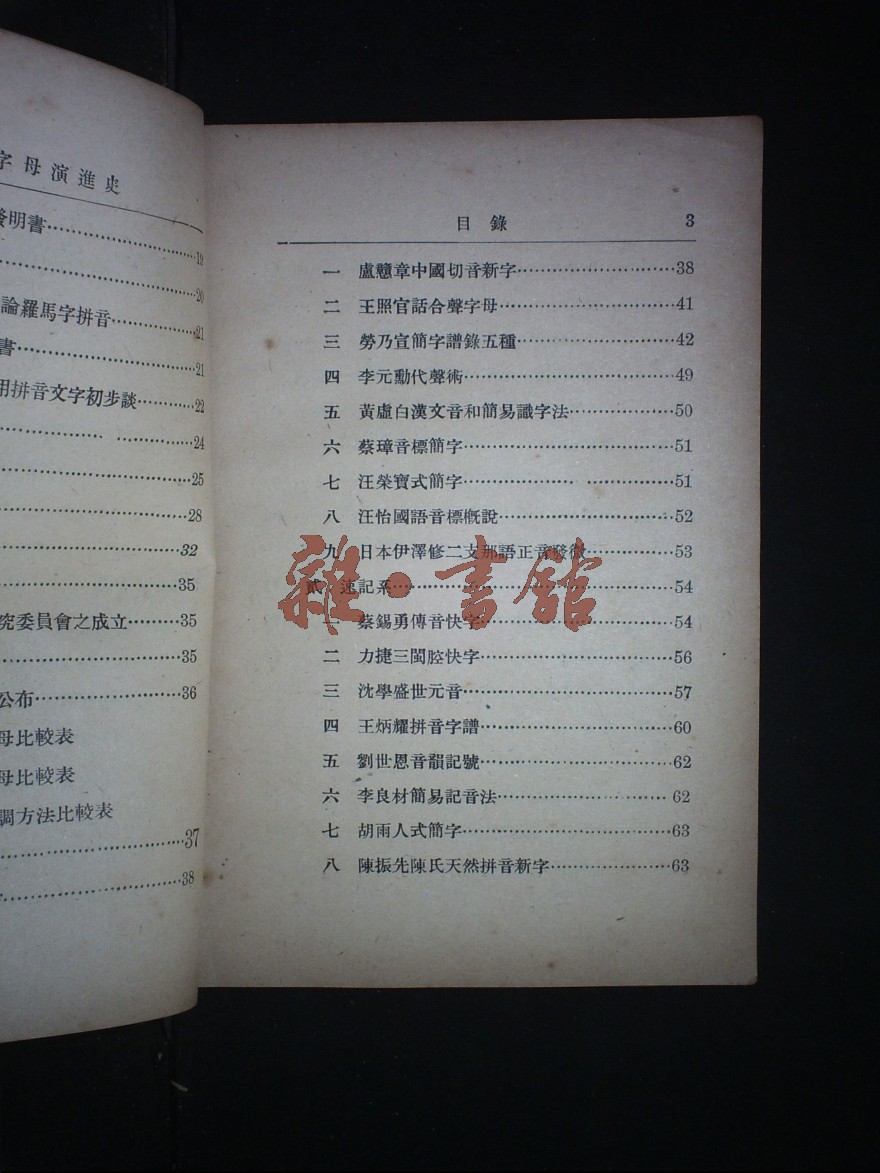 字母演進史
發明書………19
………20
論羅馬字拼音………21
書………21
用拼音文字初步談………22
………24
………25
………28
………32
………35
究委員會之成立………35
………35
公布………36
母比較表
母比較表
調方法比較表
………37
………38
目錄 3
一 盧戇章中國切音新字………38
二 王照官話合聲字母………41
三 勞乃宣簡字譜錄五種………42
四 李元勳代聲術………49
五 黃虛白漢文音和簡易識字法………50
六 蔡璋音標簡字………51
七 汪榮寶式簡字………51
八 汪怡國語音標概說………52
九 日本伊澤修二支那語正音發微………53
貳 速記系………54
一 蔡錫勇傳音快字………54
二 力捷三閩腔快字………56
三 沈學盛世元音………57
四 王炳耀拼音字譜………60
五 劉世恩音韻記號………62
六 李良材簡易記音法………62
七 胡雨人式簡字………63
八 陳振先陳氏天然拼音新字………63
雜·書館